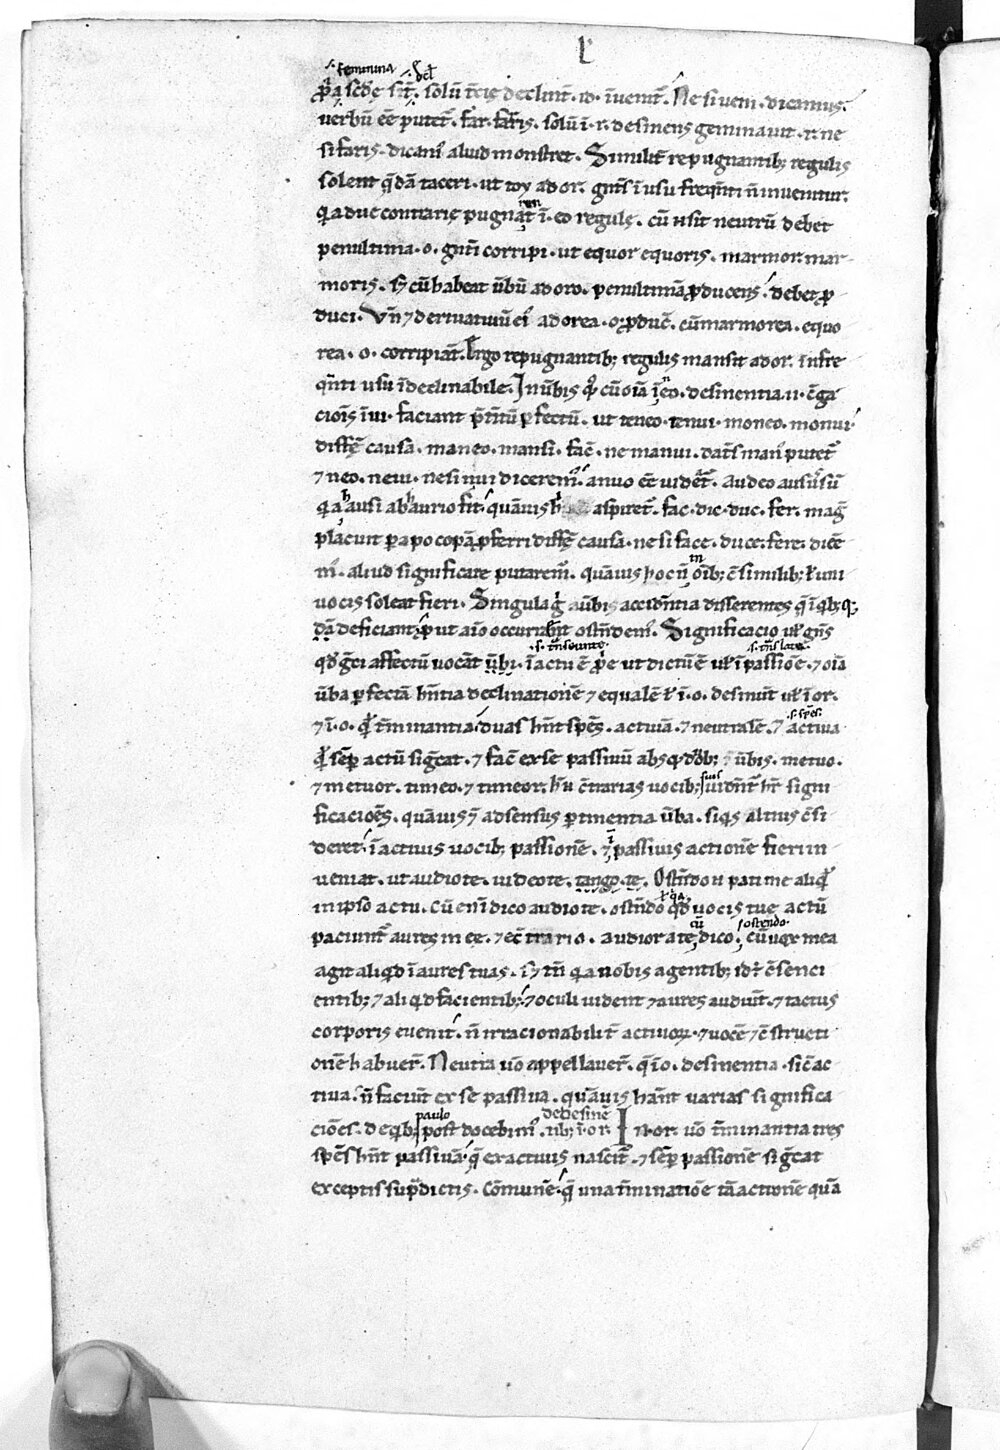 .s. feminina .s. decl
uerbū eē putet̄. far. farris. solū ī .r. desinens geminauit .r. ne
si faris. dicam̄. aliud monstret. Similit̄ repugnantib; regulis
solent q̄dā taceri. ut τωy ador. gn̄ts ī usu freq̄nti n̄ inuenitur.
q̄a duę contrarię pugnāt ī eo regulę. cū .n. sit neutrū debet
penultima .o. gn̄ti corripi. ut equor equoris. marmor mar-
moris. s; cū habeat ūbū adoro. penultimā ꝓducens. debet ꝓ-
duci. Vn̄ ⁊ deriuatiuū ei᷒ adorea .o. ꝓduc̄. cū marmorea. equo
rea .o. corripiāt. Ergo repugnantib; regulis mansit ador. infre
q̄nti usu īdeclinabile. In ūbis q̊q; cū oīa ī eo. desinentia .ii. c̄ga
cioīs ī ui. faciant p̄t̄itū ꝑfectū. ut teneo. tenui. moneo. monui.
diffr̄ę causa. maneo. mansi. fac̄. ne manui. datī᷒ man᷒ putet̄
⁊ neo. neui. ne si nui dicerem᷒. annuo eē uidet̄. Audeo ausus sū
q̄a hausi ab haurio fit. quāuis h̊ aspiret̄. fac. dic. duc. fer. mag̊
placuit ꝑ apocopā ꝓferri diffr̄ę causa. ne si face. duce. fere. dice
m᷒. aliud significare putarem᷒. quāuis hoc n̄ in oīb; c̄similib; ł uni
uocis soleat fieri. Singula g̊ ūbis accidn̄tia differentes q̄ ī qb; q̄
dā deficiant ꝓut aīo occurrerint ostn̄dem᷒. Significacio uł gn̄s
.s. tn̄seunte. .s. tn̄slate.
qd̊ g̊ci affectū uocāt ūbi. ī actu ē ꝓe ut dictū ē uł ī passiōe. ⁊ oīa
ūba ꝑfectā hn̄tia declinationē ⁊ equalē ł ī .o. desinūt uł ī or.
⁊ ī .o. q̄d̄ t̄minantia duas hn̄t spēs. actiuā. ⁊ neutralē. ⁊ actiua
q̄d̄ semꝑ actū sig̊cat. ⁊ fac̄ ex se passiuū absq; duob; ūbis. metuo.
⁊ metuor. timeo. ⁊ timeor. h̊ .n. c̄trarias uocib; suis uidn̄t̄ hr̄e signi
ficaciōes. quāuis ⁊ ad sensus ꝑtinentia ūba. siq̇s altius c̄si
deret. ī actiuis uocib; passionē. ⁊ ī passiuis actionē fieri in
ueniat. ut audio te. uideo te. tango te. Ostn̄do .n. pati me aliq̄d
in ipso actu. cū eni dico audio te. ostn̄do qd̊ uocis tue actū
paciunt̄ aures mee. ⁊ ec̄trario. audior a te cū dico. ostendo cū uox mea
agit aliqd̊ ī aures tuas. s; tn̄ q̄a nobis agentib; id t̄ c̄senci
entib; ⁊ aliqd̊ facientib; ⁊ oculi uident ⁊ aures audiūt. ⁊ tactus
corporis euenit. n̄ irracionabilit̄ actiuoꝝ ⁊ uocē ⁊ c̄structi
onē habuer̄. Neutra uō appellauer̄. q̄ ī .o. desinentia. sic̄ ac
tiua. n̄ faciūt ex se passiua. quāuis hān̄t uarias significa
ciōes. de qb; paulo post docebim᷒. de desinētib; ī or. In or uō t̄minantia tres
spēs hn̄t passiuā q̄ ex actiuis nascit̄. ⁊ semꝑ passionē sig̊cat
exceptis sup̄dictis. Cōmunē q̄ una t̄minatiōe tā actionē quā